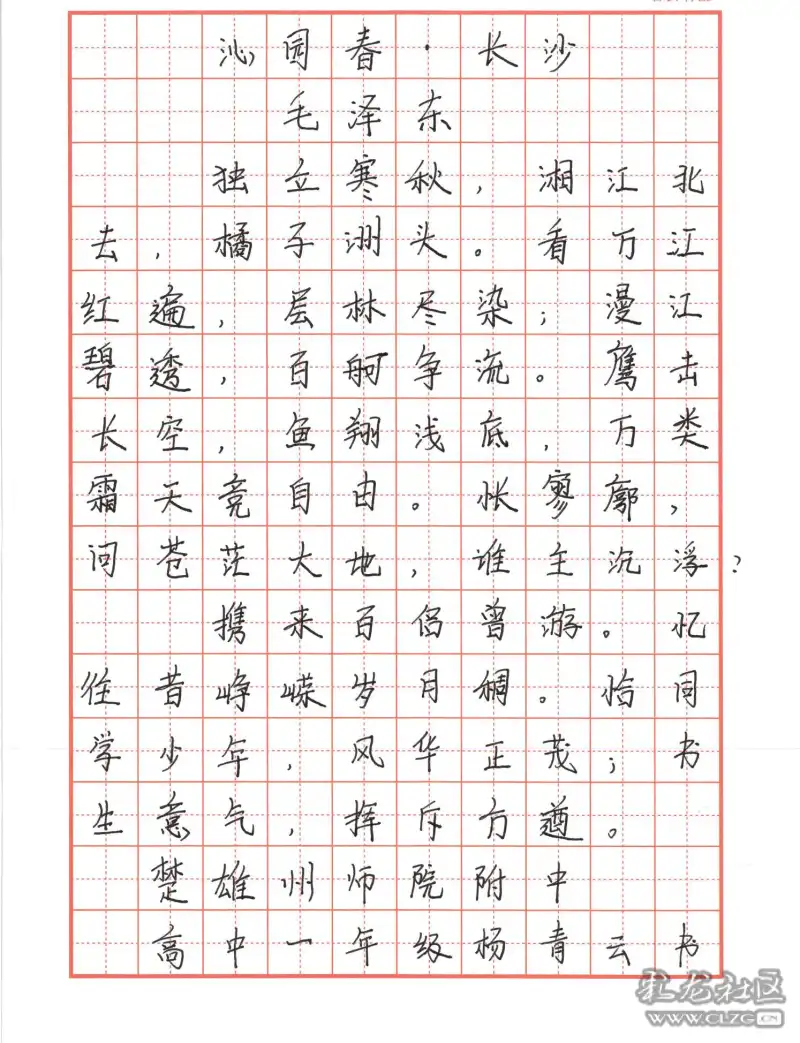 沁园春·长沙
毛泽东
独立寒秋，湘江北
去，橘子洲头。看万江
红遍，层林尽染；漫江
碧透，百舸争流。鹰击
长空，鱼翔浅底，万类
霜天竞自由。怅寥廓，
问苍茫大地，谁主沉浮？
携来百侣曾游。忆
往昔峥嵘岁月稠。恰同
学少年，风华正茂；书
生意气，挥斥方遒。
楚雄州师院附中
高中一年级杨青云书
彝龙社区
WWW.CLZG.CN